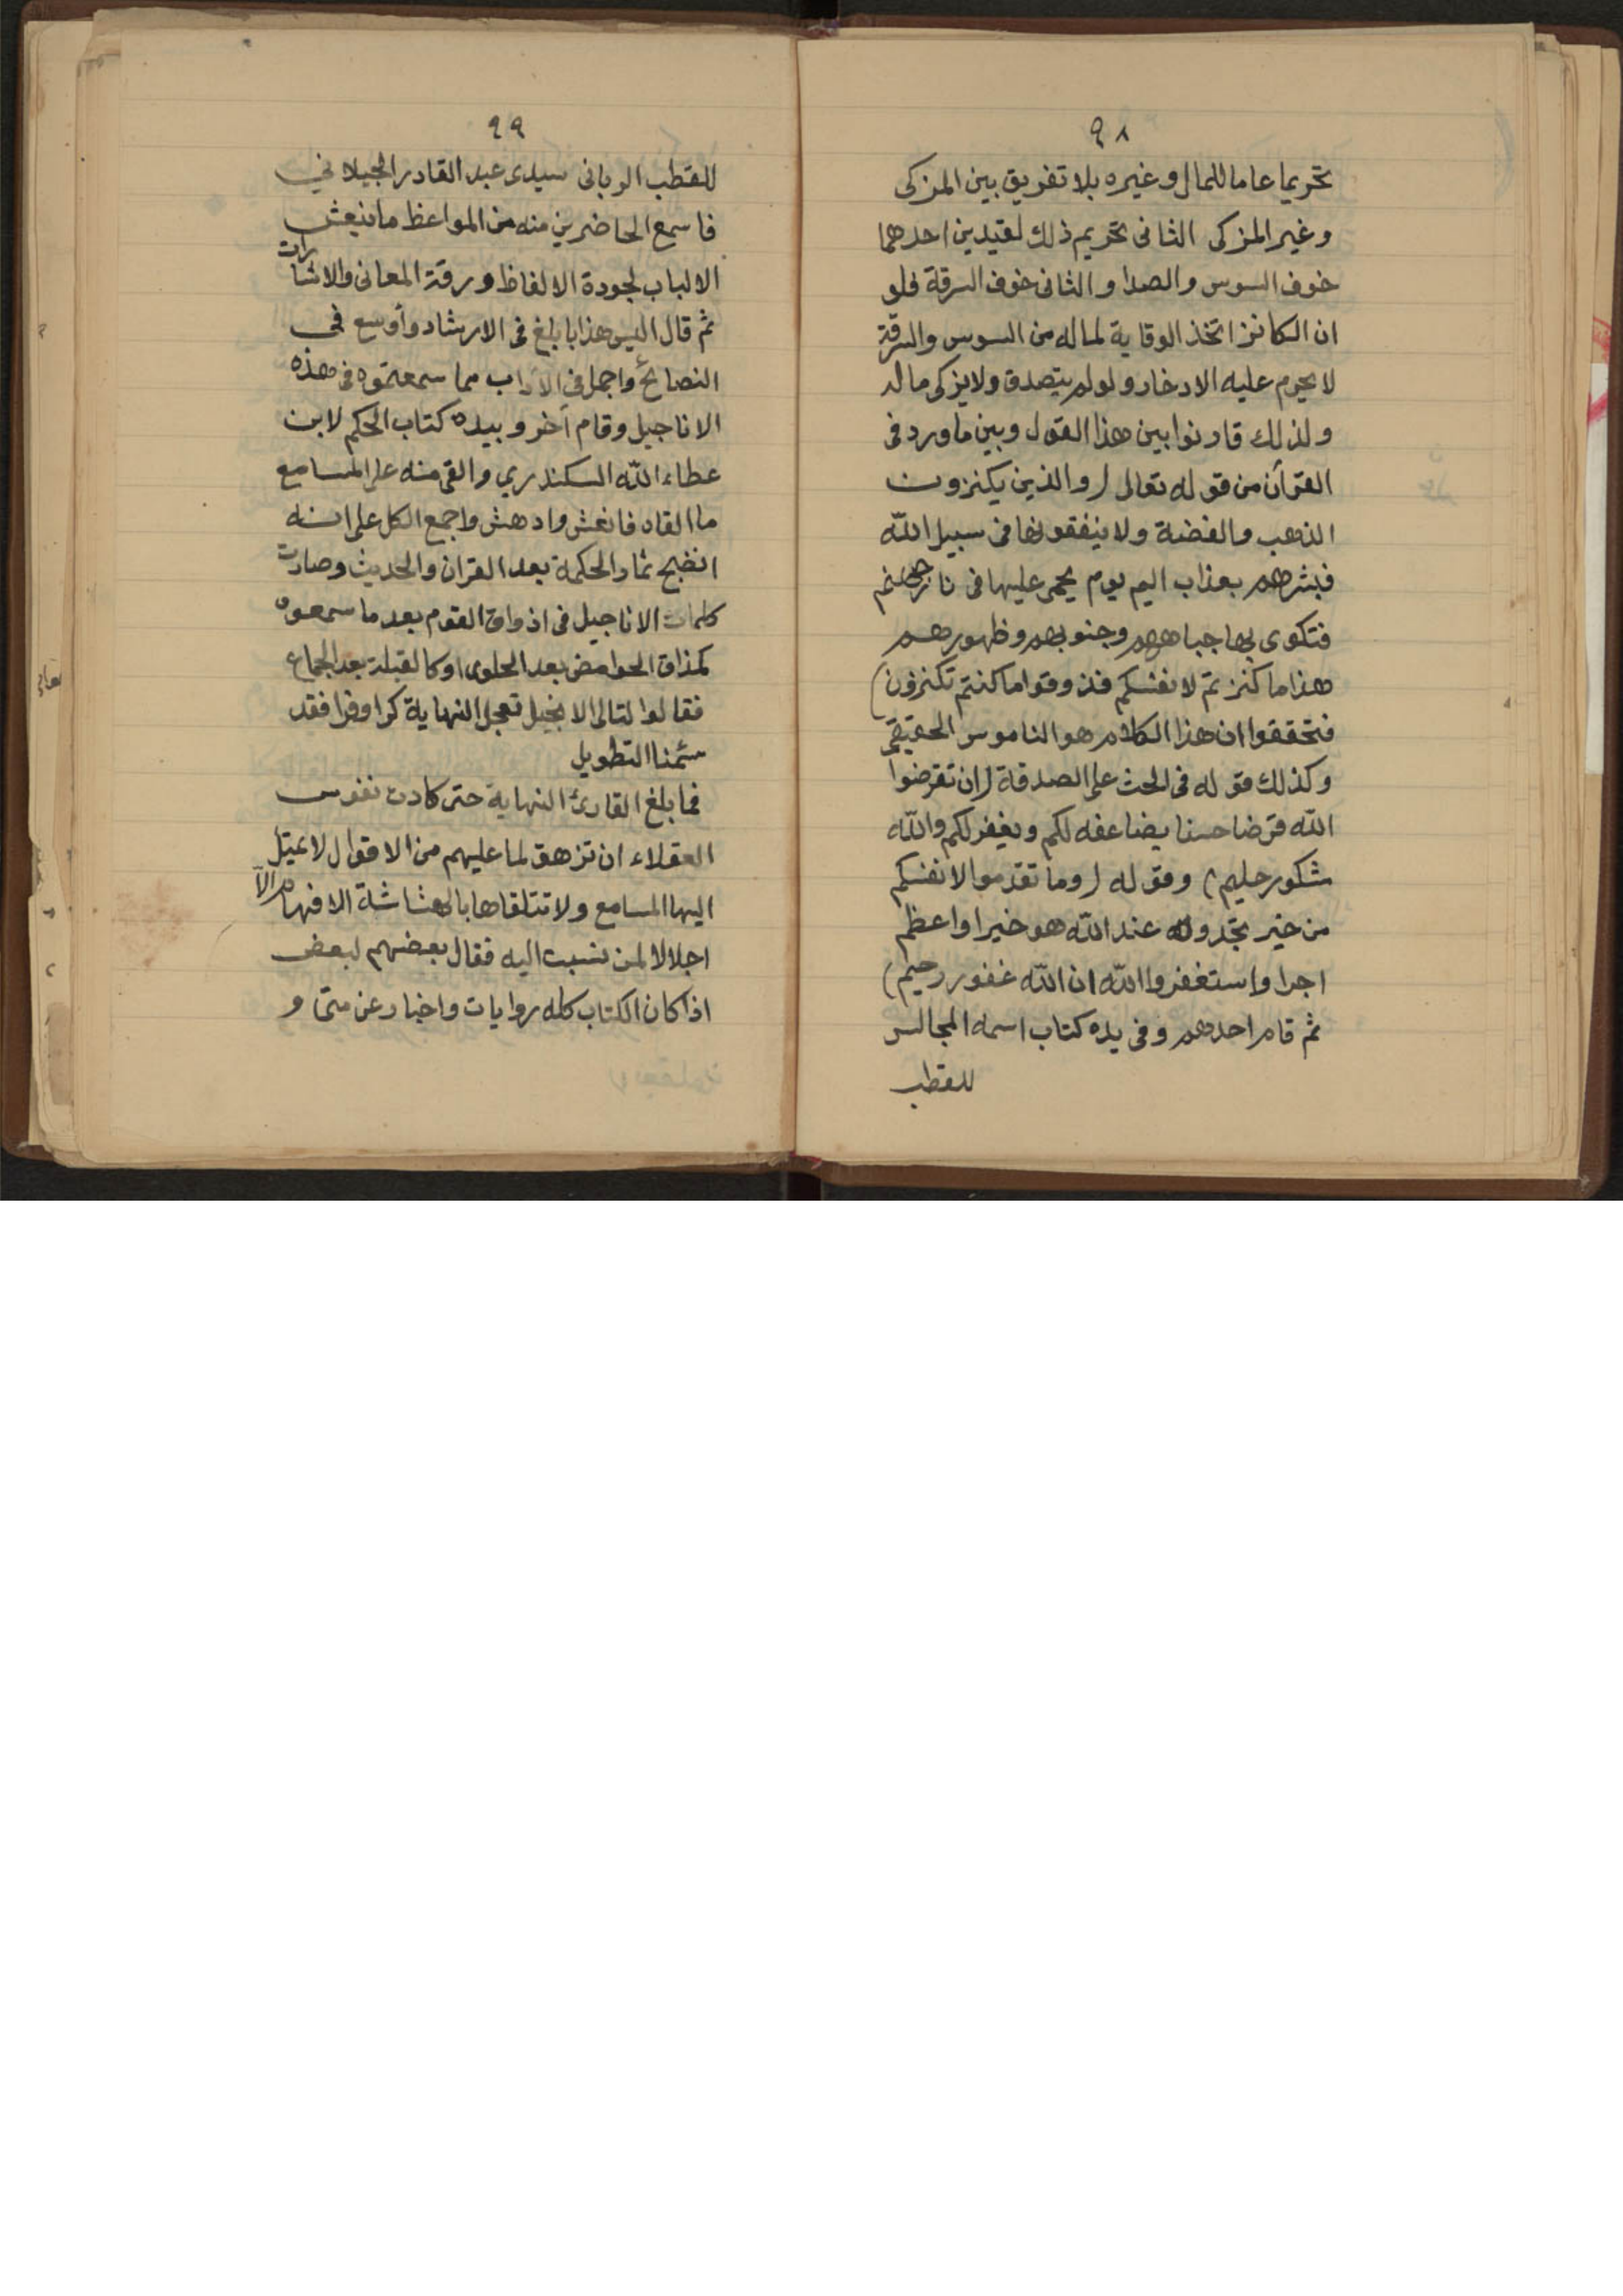 ٩٨
تحريما عاما للمال وغيره بلا تفريق بين المزكى
وغير المزكى الثانى تحريم ذلك لقيدين احدهما
خوف السوس والصدا والثانى خوف السرقة فلو
ان الكانز اتخذ الوقاية لماله من السوس والسرقة
لا يحرم عليه الادخار ولو لم يتصدق ولا يزكى ماله
ولذلك قارنوا بين هذا القول وبين ما ورد فى
القرآن من قوله تعالى (والذين يكنزون
الذهب والفضة ولا ينفقونها فى سبيل الله
فبشرهم بعذاب اليم يوم يحمى عليها فى نار جهنم
فتكوى بها جباههم وجنوبهم وظهورهم
هذا ما كنزتم لانفسكم فذوقوا ما كنتم تكنزون)
فتحققوا ان هذا الكلام هو الناموس الحقيقى
وكذلك قوله فى الحث على الصدقة (ان تقرضوا
الله قرضا حسنا يضاعفه لكم ويغفر لكم والله
شكور حليم) وقوله (وما تقدموا لانفسكم
من خير تجدوه عند الله هو خيرا واعظم
اجرا واستغفروا الله ان الله غفور رحيم)
ثم قام احدهم وفى يده كتاب اسمه المجالس
للقطب
٩٩
للقطب الربانى سيدى عبد القادر الجيلاني
فاسمع الحاضرين منه من المواعظ ما ينعش
الالباب لجودة الالفاظ ورقة المعانى والاشارات
ثم قال اليس هذا بابلغ فى الارشاد وأوسع فى
النصائح واجمل في الآداب مما سمعتموه فى هذه
الاناجيل وقام آخر وبيده كتاب الحكم لابن
عطاء الله السكندري والقى منه على المسامع
ما القاه فانعش وادهش واجمع الكل على انه
انضج ثمار الحكمة بعد القران والحديث وصارت
كلمات الاناجيل فى اذواق القوم بعد ما سمعوه
كمذاق الحوامض بعد الحلوى او كالقبلة بعد الجماع
فقالوا لتالى الانجيل تعجل النهاية كرا وفرا فقد
سئمنا التطويل
فما بلغ القارئ النهاية حتى كادت نفوس
العقلاء ان تزهق لما عليهم من الاقوال لا تميل
اليها المسامع ولا تتلقاها بالهشاشة الافهام الا
اجلالا لمن نسبت اليه فقال بعضهم لبعض
اذا كان الكتاب كله روايات واخبار عن متى و